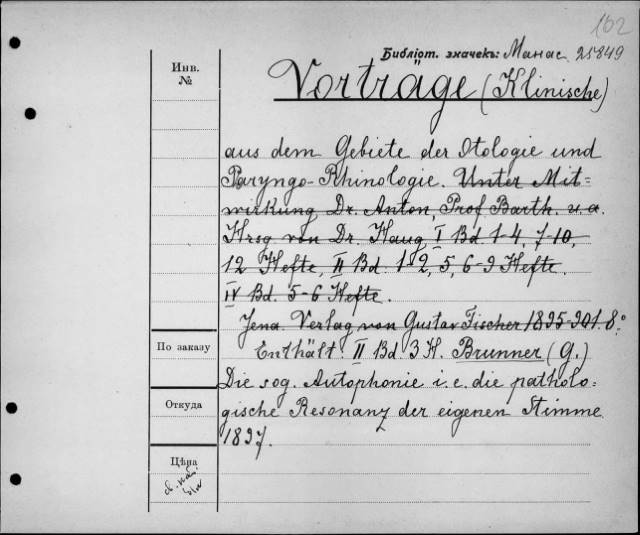 102
Библіот. значекъ: Манас. 25849
Инв.
№
Vorträge (Klinische)
aus dem Gebiete der Otologie und
Paryngo-Rhinologie. Unter Mit=
wirkung Dr. Anton, Prof Barth. u. a.
Hrsg von Dr. Haug I Bd 1-4, 7-10,
12 Hefte, II Bd. 1-2, 5, 6-9 Hefte.
IV Bd. 5-6 Hefte.
Jena. Verlag von Gustav Fischer 1895-901. 8.°
По заказу
Enthält: II Bd 3 H. Brunner (G.)
Die sog. Autophonie i. e. die patholo=
Откуда
gische Resonanz der eigenen Stimme
1897.
Цѣна